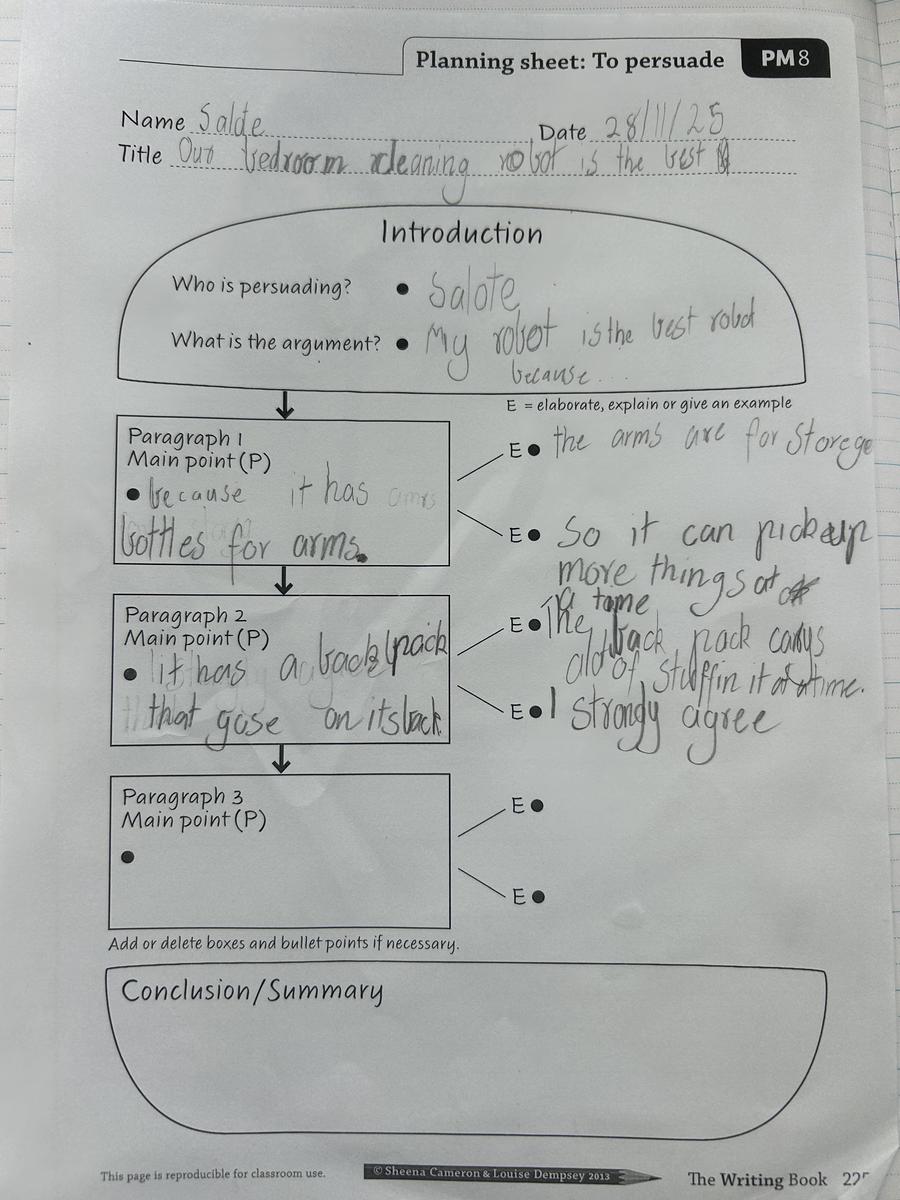 Planning sheet: To persuade PM8
Name Salote Date 28/11/25
Title Our bedroom cleaning robot is the best
Introduction
Who is persuading? • Salote
What is the argument? • My robot is the best robot
because...
E = elaborate, explain or give an example
Paragraph 1
Main point (P)
• because it has
bottles for arms.
E • the arms are for Storege
E • So it can pickup
more things at
a tame
Paragraph 2
Main point (P)
• it has a back pack
that gose on its back.
E • The back pack carys
alot of stuff in it at a time.
E • I strongly agree
Paragraph 3
Main point (P)
•
E •
E •
Add or delete boxes and bullet points if necessary.
Conclusion/Summary
This page is reproducible for classroom use.
© Sheena Cameron & Louise Dempsey 2013
The Writing Book